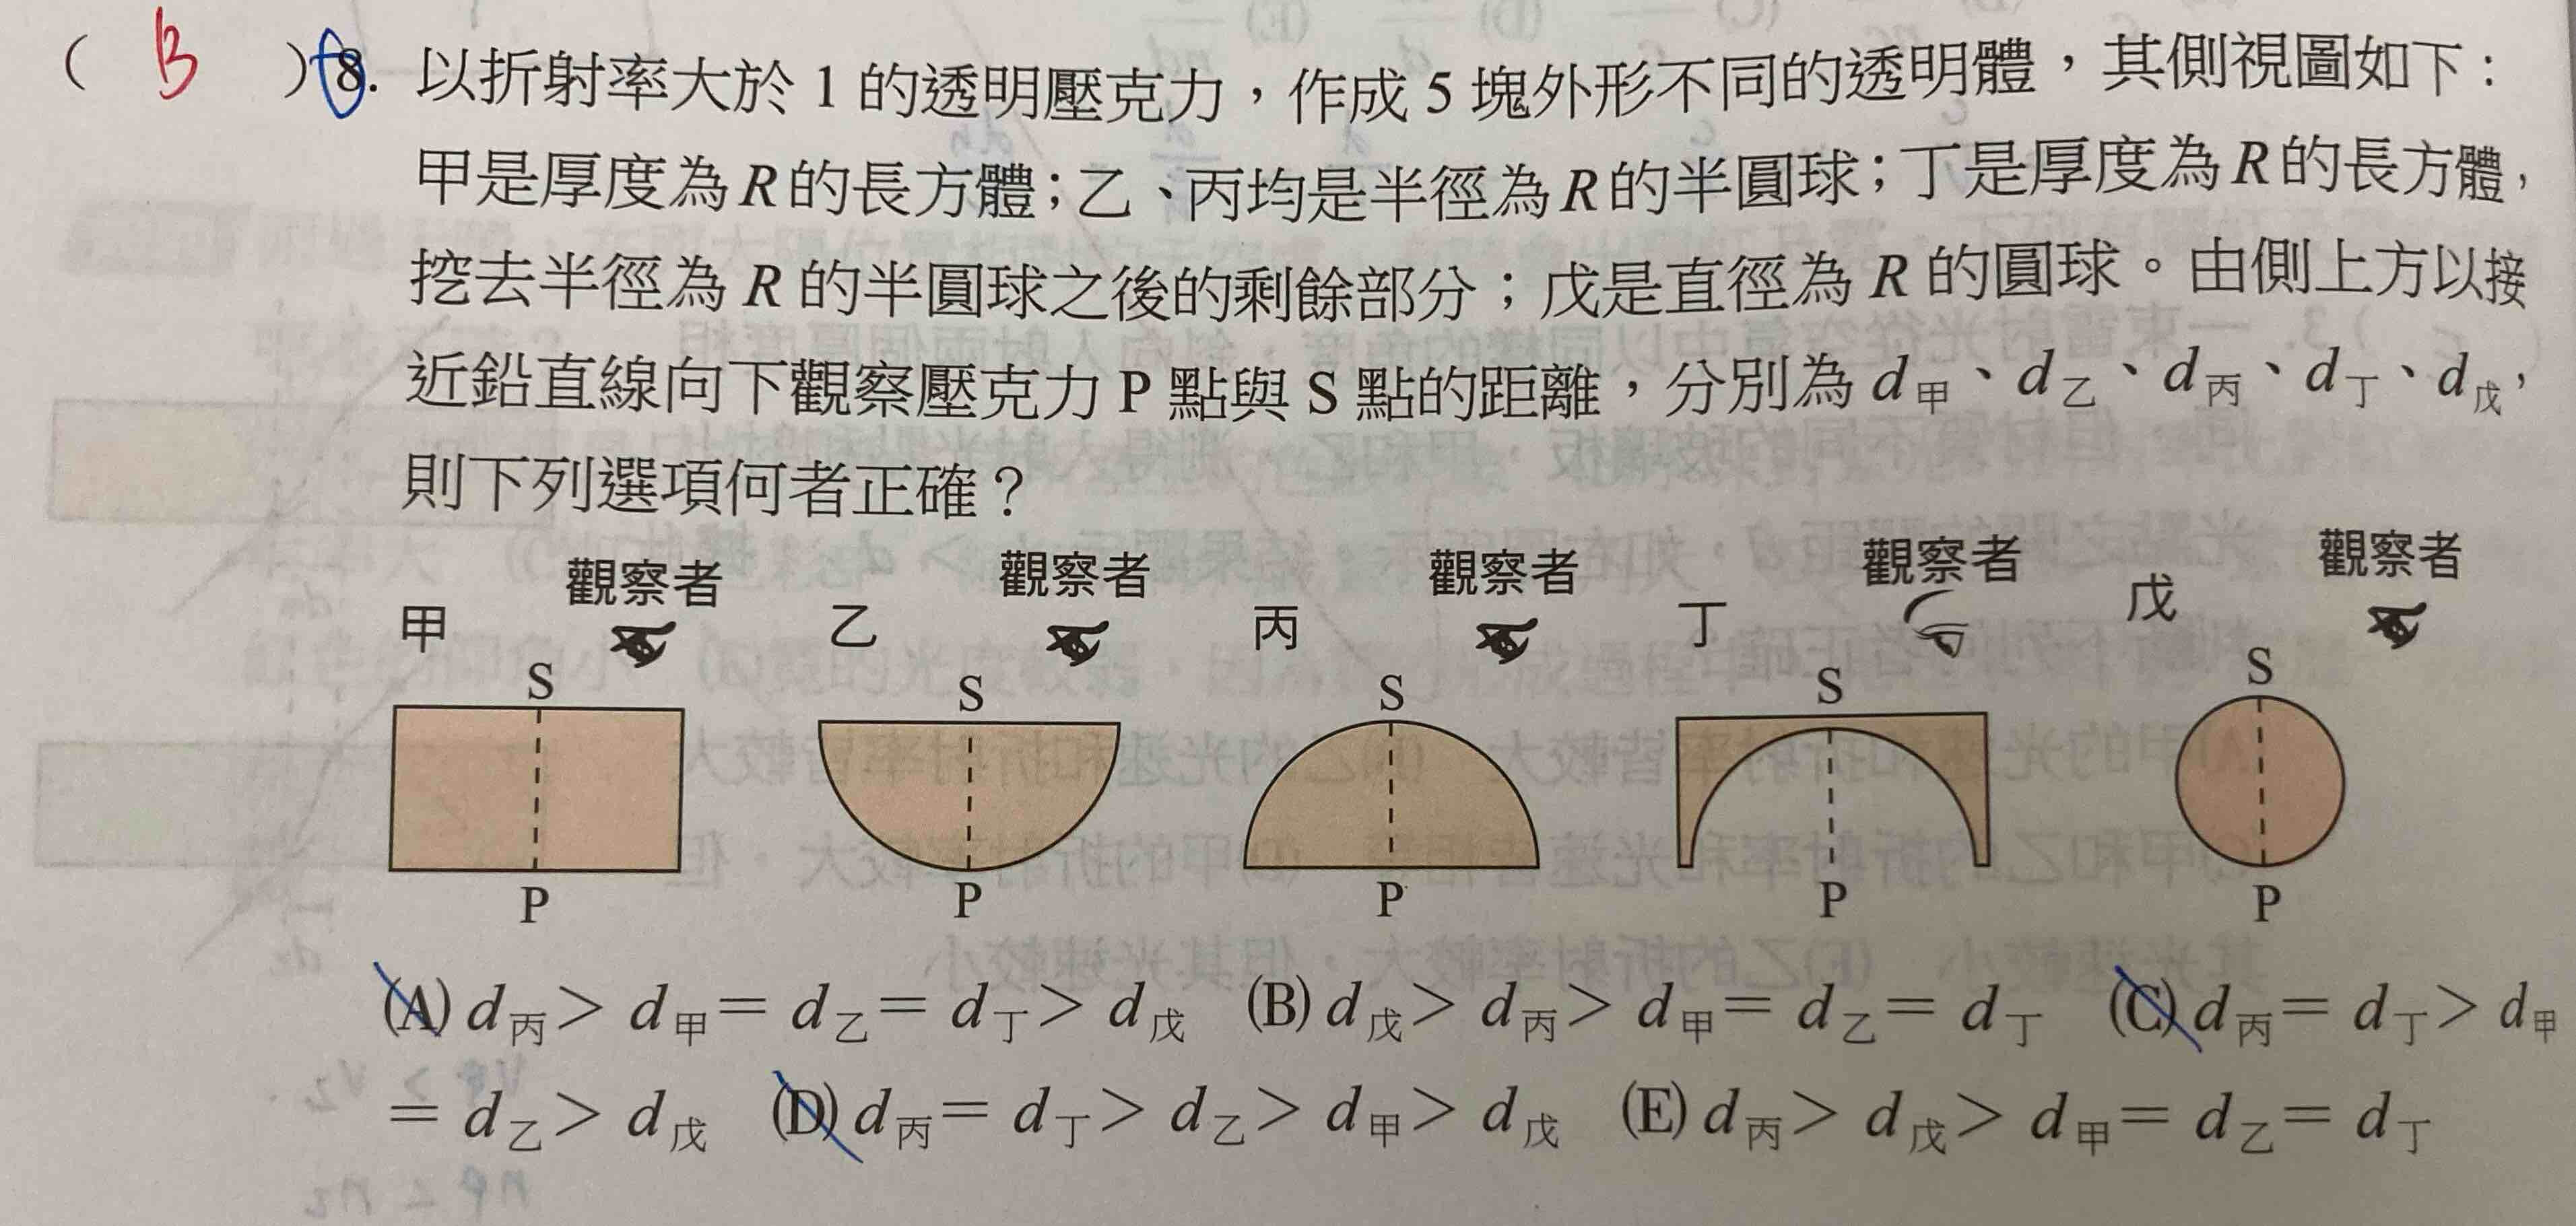 ( B ) 8. 以折射率大於 1 的透明壓克力，作成 5 塊外形不同的透明體，其側視圖如下：
甲是厚度為 R 的長方體；乙、丙均是半徑為 R 的半圓球；丁是厚度為 R 的長方體，
挖去半徑為 R 的半圓球之後的剩餘部分；戊是直徑為 R 的圓球。由側上方以接
近鉛直線向下觀察壓克力 P 點與 S 點的距離，分別為 d甲、d乙、d丙、d丁、d戊，
則下列選項何者正確？
甲 觀察者 S P
乙 觀察者 S P
丙 觀察者 S P
丁 觀察者 S P
戊 觀察者 S P
(A) d丙＞d甲＝d乙＝d丁＞d戊 (B) d戊＞d丙＞d甲＝d乙＝d丁 (C) d丙＝d丁＞d甲
＝d乙＞d戊 (D) d丙＝d丁＞d乙＞d甲＞d戊 (E) d丙＞d戊＞d甲＝d乙＝d丁